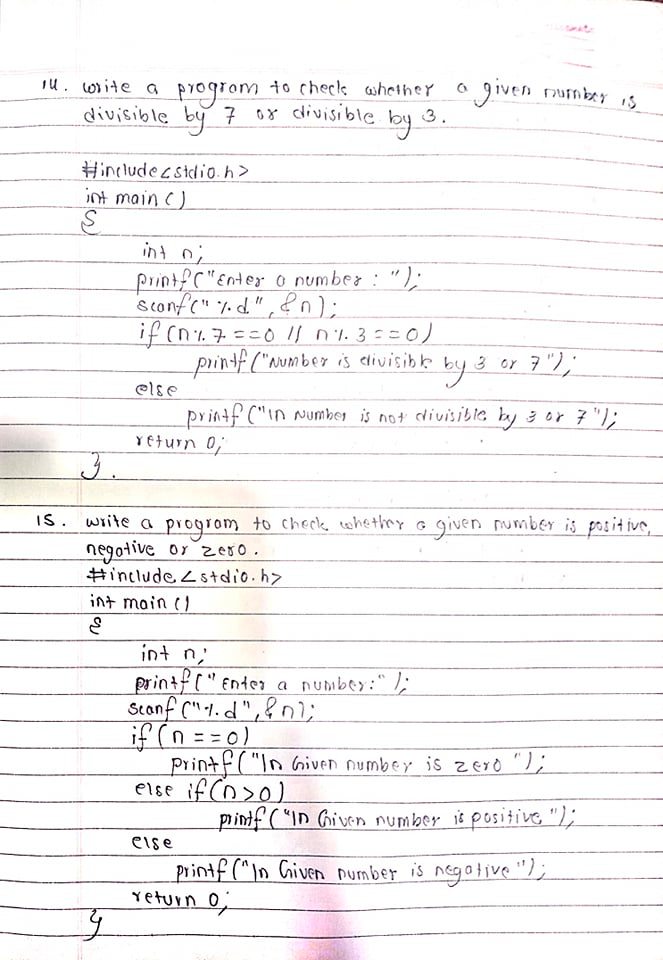 14. write a program to check whether a given number is
divisible by 7 or divisible by 3.
#include<stdio.h>
int main()
{
int n;
printf("Enter a number : ");
scanf("%d", &n);
if (n%7==0 || n%3==0)
printf("Number is divisible by 3 or 7");
else
printf("\n Number is not divisible by 3 or 7");
return 0;
}.
15. write a program to check whether a given number is positive,
negative or zero.
#include<stdio.h>
int main()
{
int n;
printf("Enter a number:");
scanf("%d", &n);
if (n==0)
printf("\n Given number is zero");
else if (n>0)
printf("\n Given number is positive");
else
printf("\n Given number is negative");
return 0;
}